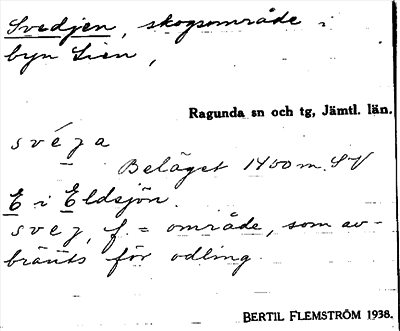 Svedjen, skogsområde i
byn Lien,
Ragunda sn och tg, Jämtl. län.
svéʒa
Beläget 1400 m. SV
E i Eldsjön.
sveʒ, f. = område, som av-
bränts för odling.
BERTIL FLEMSTRÖM 1938.